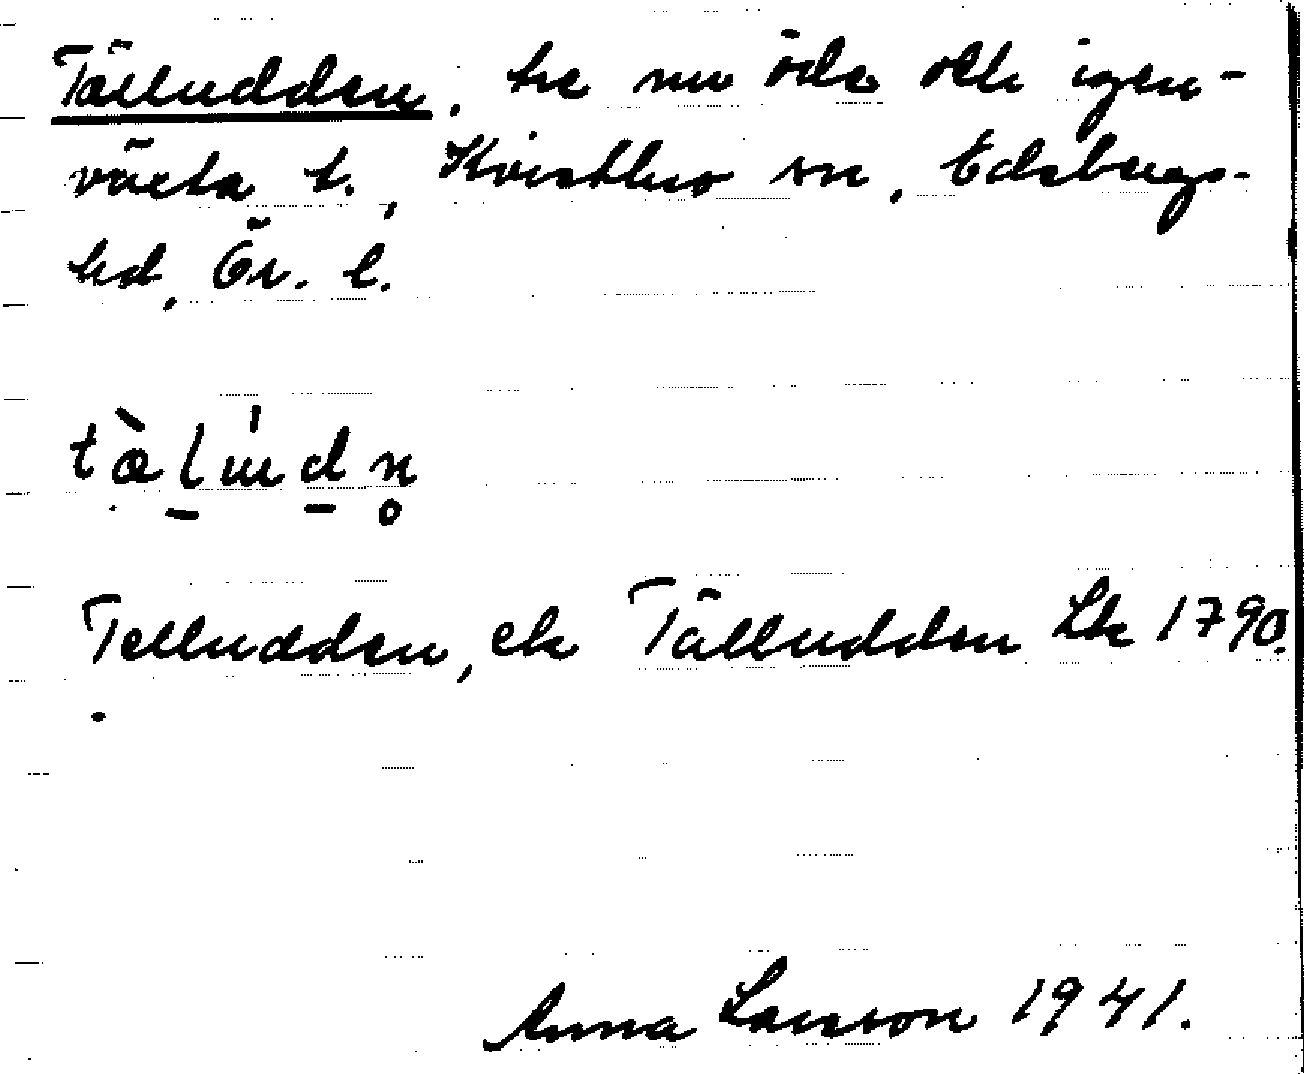 Tälludden, tre nu öde och igen-
växta t., Kvistbro sn, Edsbergs
hd, Ör. l.
tæ̀lu̍dn̥
Telludden, ek Tälludden Lk 1790.
Anna Larsson 1941.